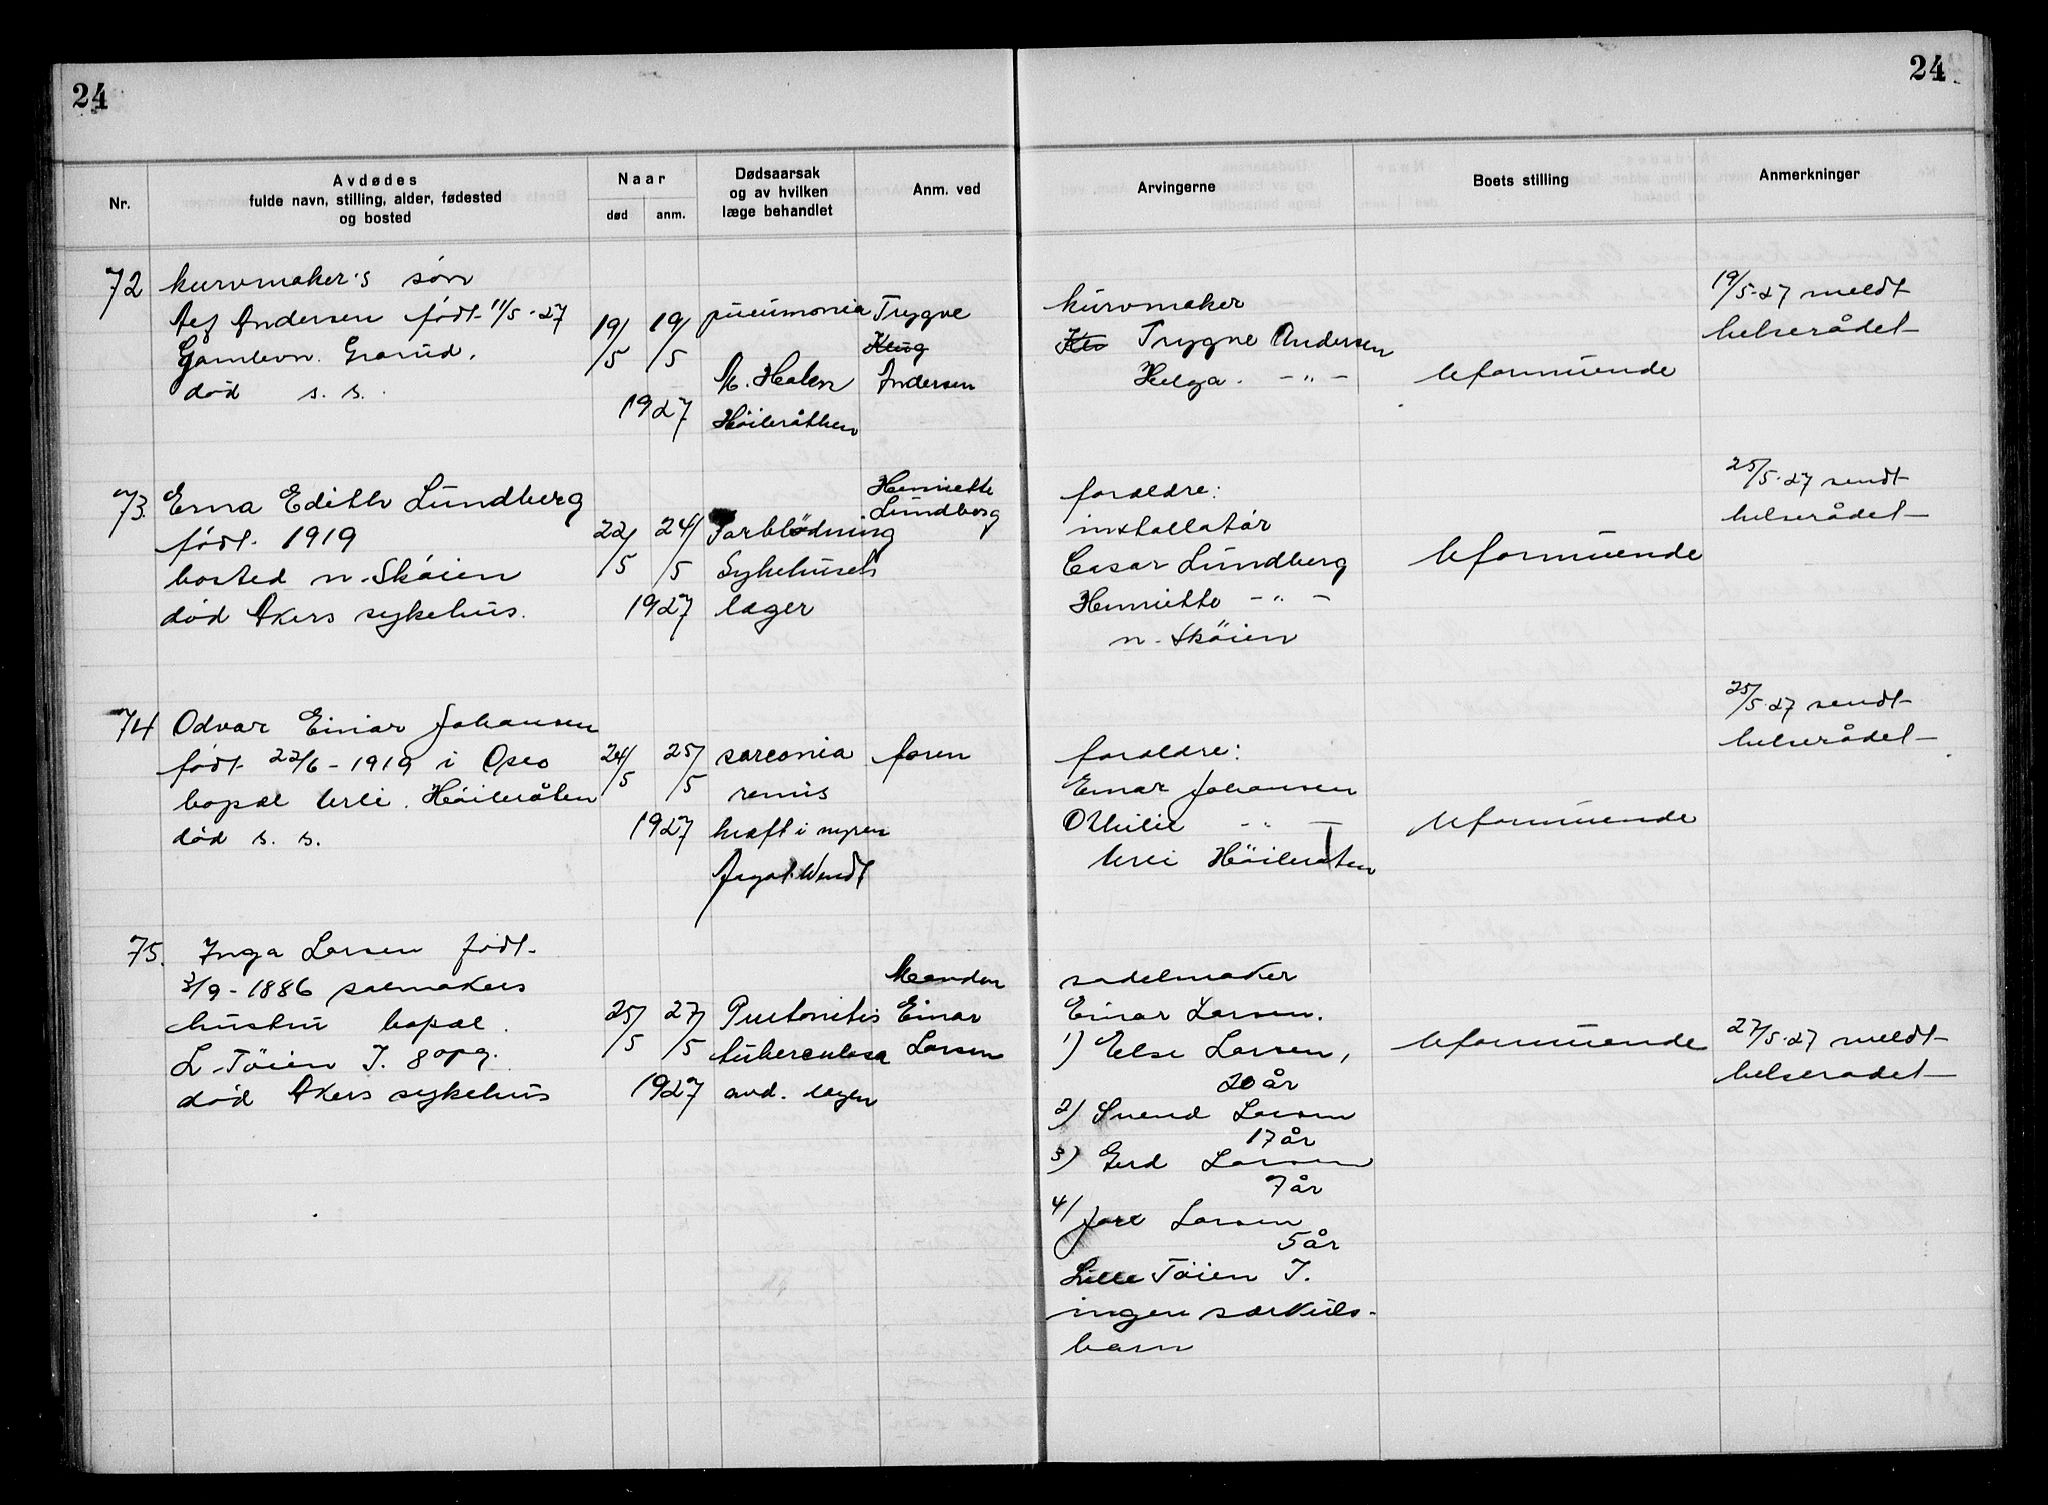 24
24
Nr.
Avdødes
fulde navn, stilling, alder, fødested
og bosted
Naar
død
anm.
Dødsaarsak
og av hvilken
læge behandlet
Anm. ved
Arvingerne
Boets stilling
Anmerkninger
72
kurvmaker's søn
Andersen født 11/5-27
Gamlevn. Grorud.
død s. s.
19/5 19/5
1927
pneumonia
Halen
Höiebråthen
Trygve
Andersen
kurvmaker
Trygve Andersen
Helga - " -
Uformuende
19/5-27 meldt
helserådet
73.
Erna Edith Lundberg
født 1919
bosted n. Skøien
død Akers sykehus.
22/5 24/5
1927
Forblødning
Sykehusets
læger
Henriette
Lundberg
forældre:
installatør
Cæsar Lundberg
Henriette - " -
n. Skøien
Uformuende
25/5-27 sendt
helserådet
74
Odvar Einar Johansen
født 22/6 - 1919 i Oslo
bopæl Urli. Höibråten
død s. s.
24/5 25/5
1927
sarcomia
renis
kræft i nyren
Wendt
faren
forældre:
Einar Johansen
Othilie " -
Urli Höibråten
Uformuende
25/5-27 sendt
helserådet
75.
Inga Larsen født
3/9 - 1886 salmakers
hustru bopæl.
L. Töien I. 8 opg.
død Akers sykehus
25/5 27/5
1927
Peritonitis
tuberculosa
avd. lægen
Manden
Einar
Larsen
sadelmaker
Einar Larsen.
1) Else Larsen,
20 år
2) Svend Larsen
17 år
3) Gerd Larsen
7 år
4) Larsen
5 år
Lille Töien I.
ingen særkuls-
barn
Uformuende
27/5-27 meldt
helserådet